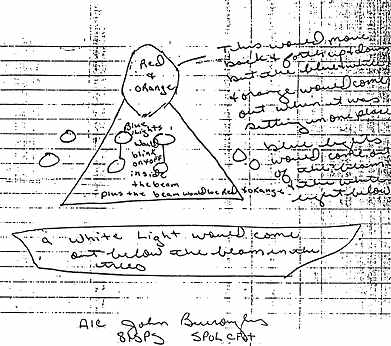 Red
&
orange
This would move
back & forth up + down
but the blue + white
+ orange would come
out when it was
sitting in one place
Blue
lights
would
blink
on/off
inside
the beam
plus the beam would be Red & orange
blue lights
would come out
of the beam
+ the white
light below
a White Light would come
out below the beam in the
trees
A1C John Burroughs
81 SPS